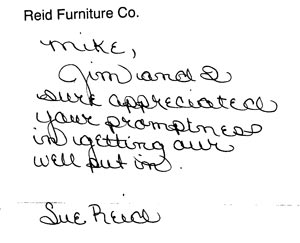 Reid Furniture Co.
Mike,
Jim and I
sure appreciated
your promptness
in getting our
well put in.
Sue Reid